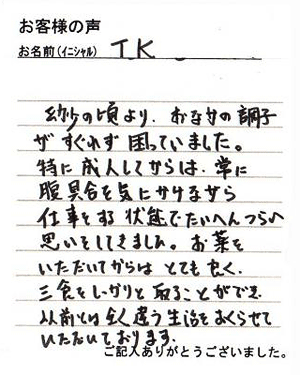 お客様の声
お名前(イニシャル) T.K
幼少の頃より、おなかの調子
がすぐれず困っていました。
特に成人してからは、常に
腹具合を気にかけながら
仕事をする状態でたいへんつらい
思いをしてきました。お薬を
いただいてからはとても良く、
三食をしっかりと取ることができ、
以前とは全く違う生活をおくらせて
いただいております。
ご記入ありがとうございました。